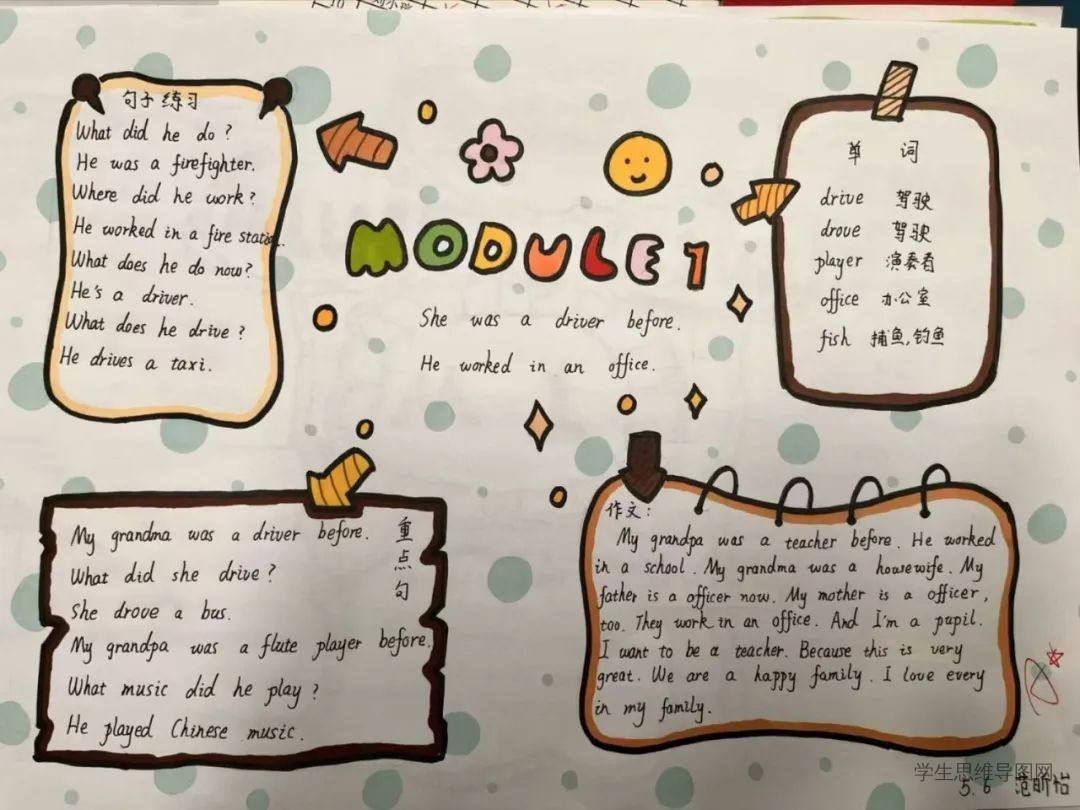 句子练习
What did he do?
He was a firefighter.
Where did he work?
He worked in a fire station.
What does he do now?
He's a driver.
What does he drive?
He drives a taxi.
MODULE 1
She was a driver before.
He worked in an office.
单 词
drive 驾驶
drove 驾驶
player 演奏者
office 办公室
fish 捕鱼,钓鱼
重点句
My grandma was a driver before.
What did she drive?
She drove a bus.
My grandpa was a flute player before.
What music did he play?
He played Chinese music.
作文:
My grandpa was a teacher before. He worked
in a school. My grandma was a housewife. My
father is a officer now. My mother is a officer,
too. They work in an office. And I'm a pupil.
I want to be a teacher. Because this is very
great. We are a happy family. I love every
in my family.
学生思维导图网
5.6 范昕怡